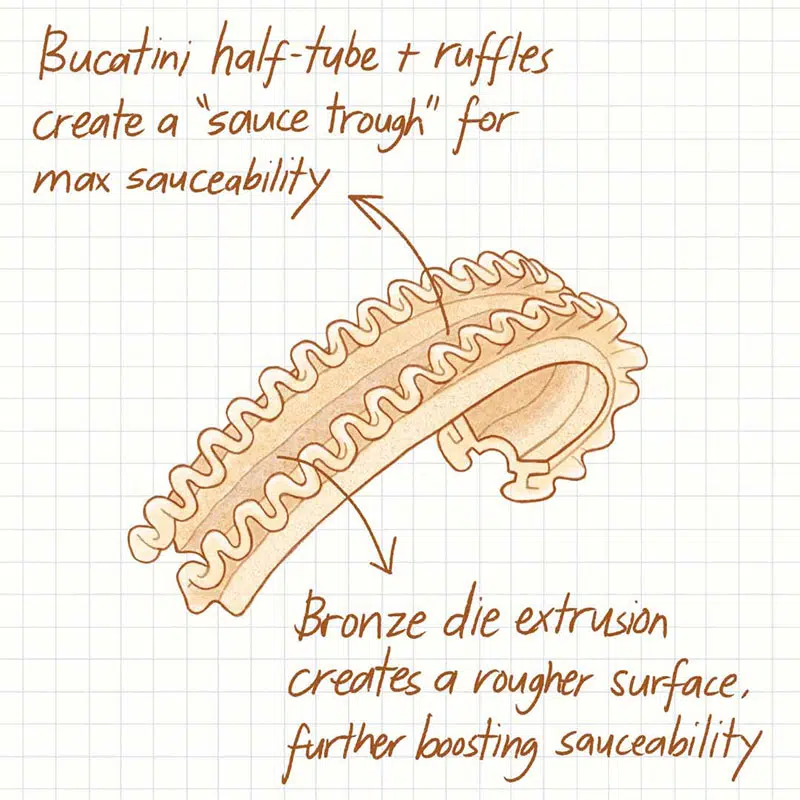 Bucatini half-tube + ruffles
create a "sauce trough" for
max sauceability
Bronze die extrusion
creates a rougher surface,
further boosting sauceability